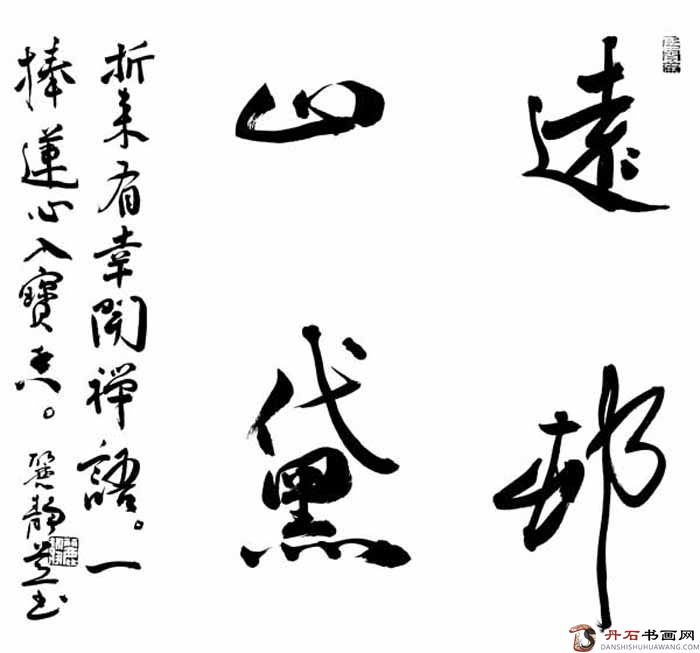 遠邨
山黛
折来有幸聞禪語。一
捧蓮心入寶。
静书
丹石书画网
DANSHISHUHUAWANG.COM